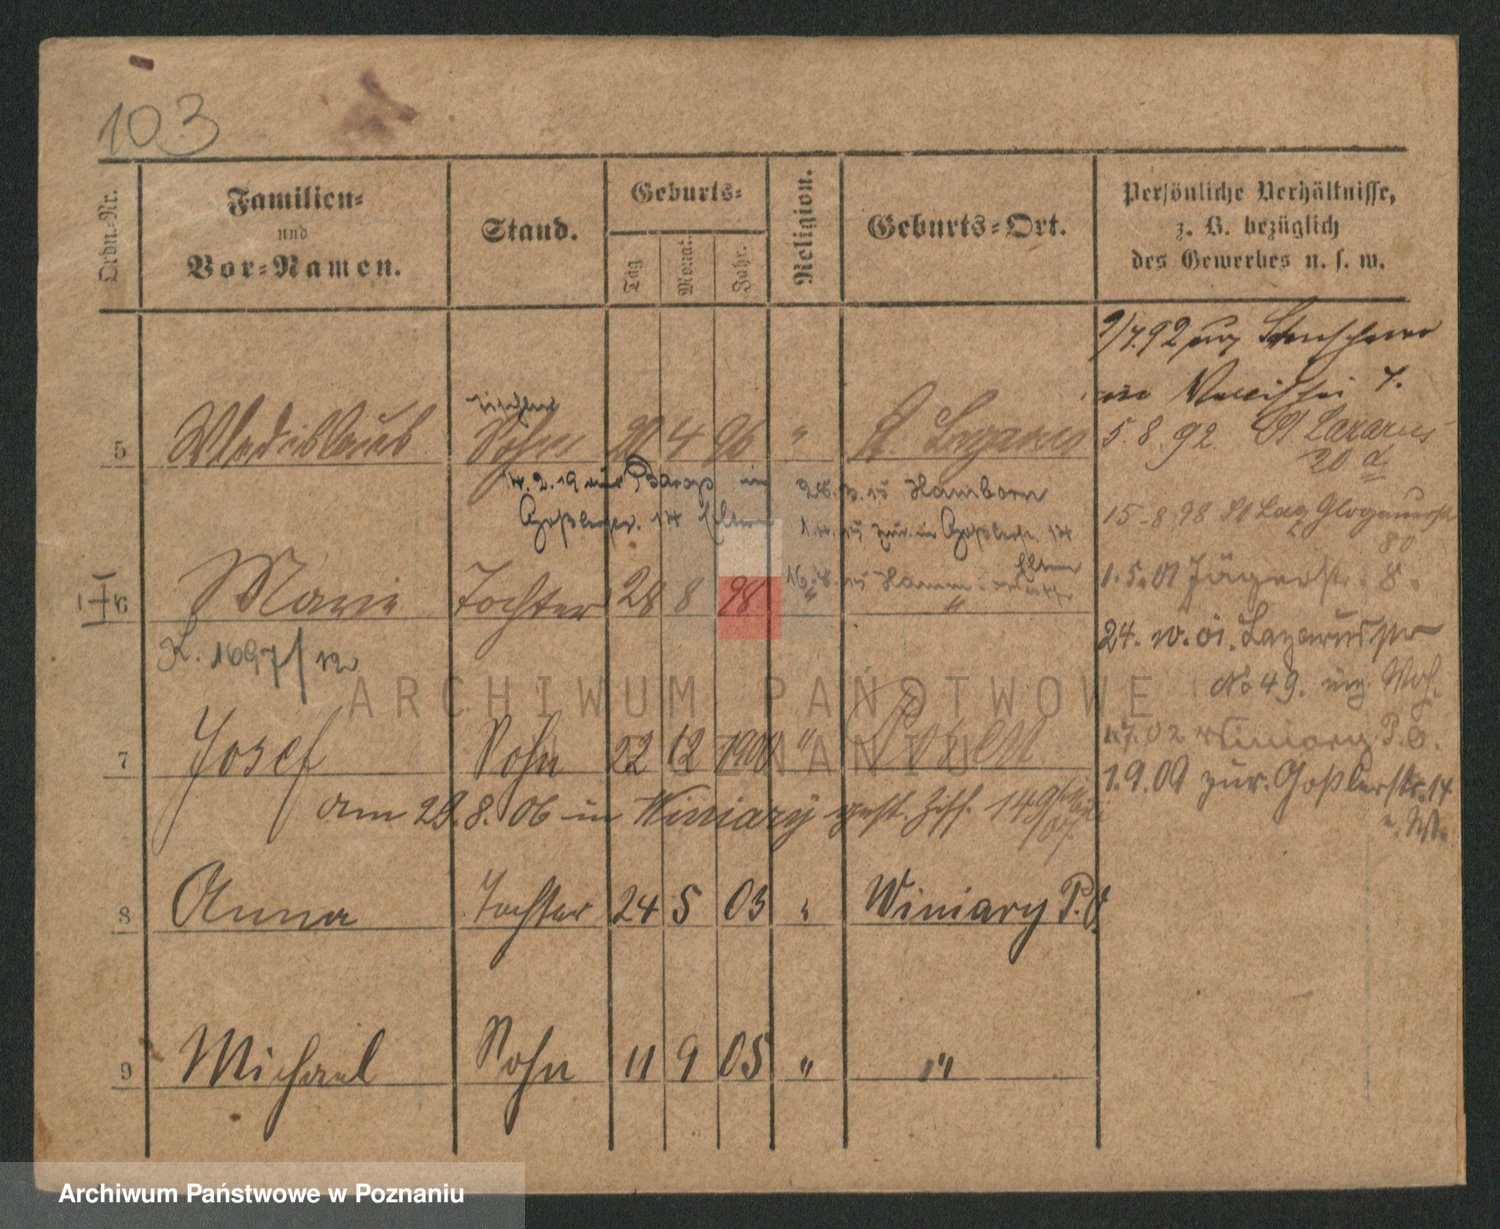 103
Ordn.-Nr.
Familien-
und
Vor-Namen.
Stand.
Geburts-
Tag.
Monat.
Jahr.
Religion.
Geburts-Ort.
Persönliche Verhältnisse,
z. B. bezüglich
des Gewerbes u. s. w.
9/7.92
5 Wladislaus Sohn 4 96 " St. Lazarus
Tischler
5.8.92. St Lazarus
20 a
14.2.19 aus in
14 Eltern
28.3.15 Hamborn
zur. in Goßlerstr. 14
Eltern
15.8.98 St Laz Glogauerstr
80
6 Marie Tochter 28 8 98 " "
1.5.01 Jägerstr. 8.
K. 1697/12
24. 10. 01. Lazarusstr
No 49.
7 Josef Sohn 22 12 1900 " Posen
Winiary P. O.
1.9.09 zur. Goßlerstr. 14
am 29.8.06 in Winiary gest. Ziff. 149
07.
8 Anna Tochter 24 5 03 " Winiary P. O.
9 Michael Sohn 11 9 05 " "
ARCHIWUM PAŃSTWOWE
W POZNANIU
Archiwum Państwowe w Poznaniu